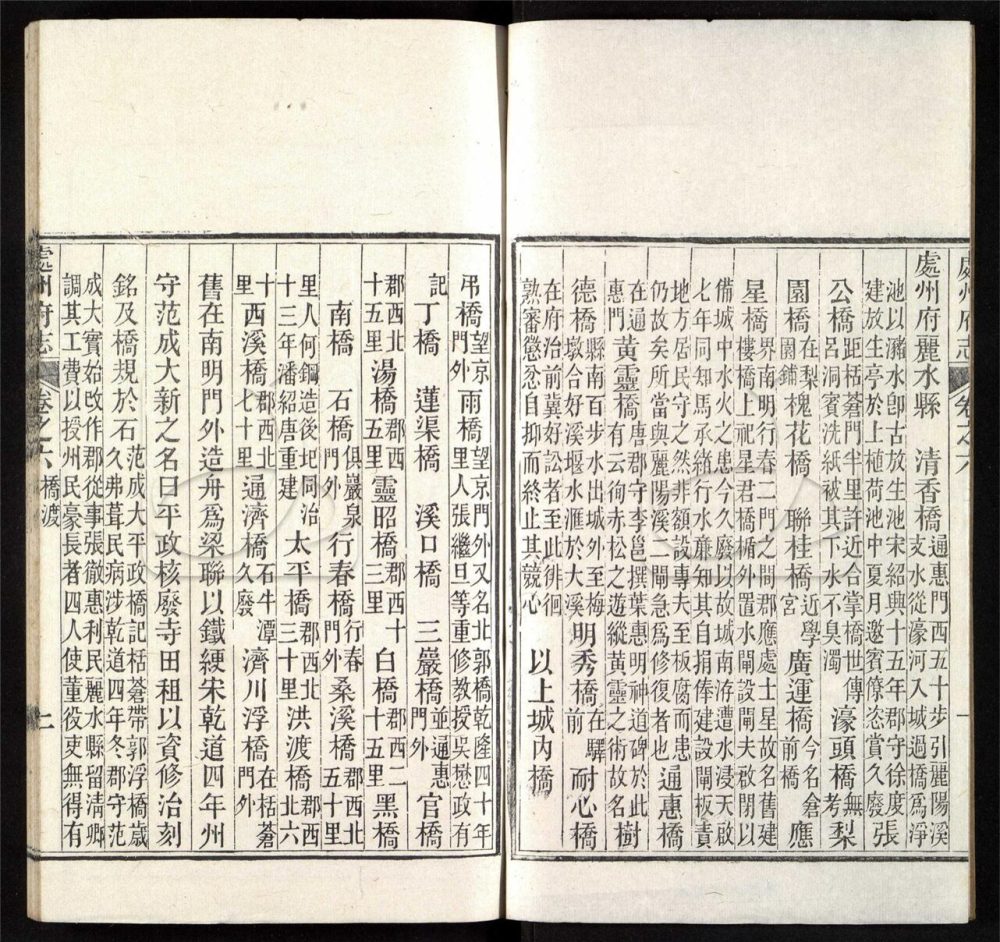 處州府志 卷之六 一
處州府麗水縣 清香橋 通惠門西五十步引麗陽溪支水從濠河入城過橋為淨
池以瀦水卽古放生池宋紹興十五年郡守徐度建放生亭於上植荷池中夏月邀賓僚恣賞久廢 張
公橋 距栝蒼門半里許近合掌橋世傳呂洞賓洗紙被其下水不臭濁 濠頭橋 無考 梨
園橋 在梨園鋪 槐花橋 聯桂橋 近學宮 廣運橋 今名倉前橋 應
星橋 界南明行春二門之間郡應處士星故名舊建樓橋上祀星君橋楯外置水閘設閘夫啟閉以
備城中水火之患今久廢以故城南洊遭水浸天啟七年同知馬承緒行水亷知其自捐俸建設閘板責
地方居民守之然非額設專夫至板腐而患仍故矣所當與麗陽溪二閘急為修復者也 通惠橋
在通惠門 黃靈橋 唐郡守李邕撰葉惠明神道碑於此有云徇赤松之遊縱黃靈之術故名 樹
德橋 縣南百步水出城外至梅墩合好溪堰水滙於大溪 明秀橋 在驛前 耐心橋
在府治前冀好訟者至此徘徊熟審懲忿自抑而終止其競心 以上城內橋
弔橋 望京門外 雨橋 望京門外又名北郭橋乾隆四十年里人張繼旦等重修教授吳懋政有
記 丁橋 蓮渠橋 溪口橋 三巖橋 並通惠門外 官橋
郡西北十五里 湯橋 郡西五里 靈昭橋 郡西十三里 白橋 郡西二十五里 黑橋
南橋 石橋 俱巖泉門外 行春橋 行春門外 桑溪橋 郡西北五十里
里人何鋼造後圯同治十三年潘紹唐重建 太平橋 郡西北三十里 洪渡橋 郡西北六
十里 西溪橋 郡西北七十里 通濟橋 石牛潭久廢 濟川浮橋 在栝蒼門外
舊在南明門外造舟為梁聯以鐵綆宋乾道四年州
守范成大新之名曰平政核廢寺田租以資修治刻
銘及橋規於石 范成大平政橋記栝蒼帶郭浮橋歲久弗葺民病涉乾道四年冬郡守范
成大實始改作郡從事張徹惠利民麗水縣留清卿調其工費以授州民豪長者四人使董役吏無得有
處州府志 卷之六 橋渡 二